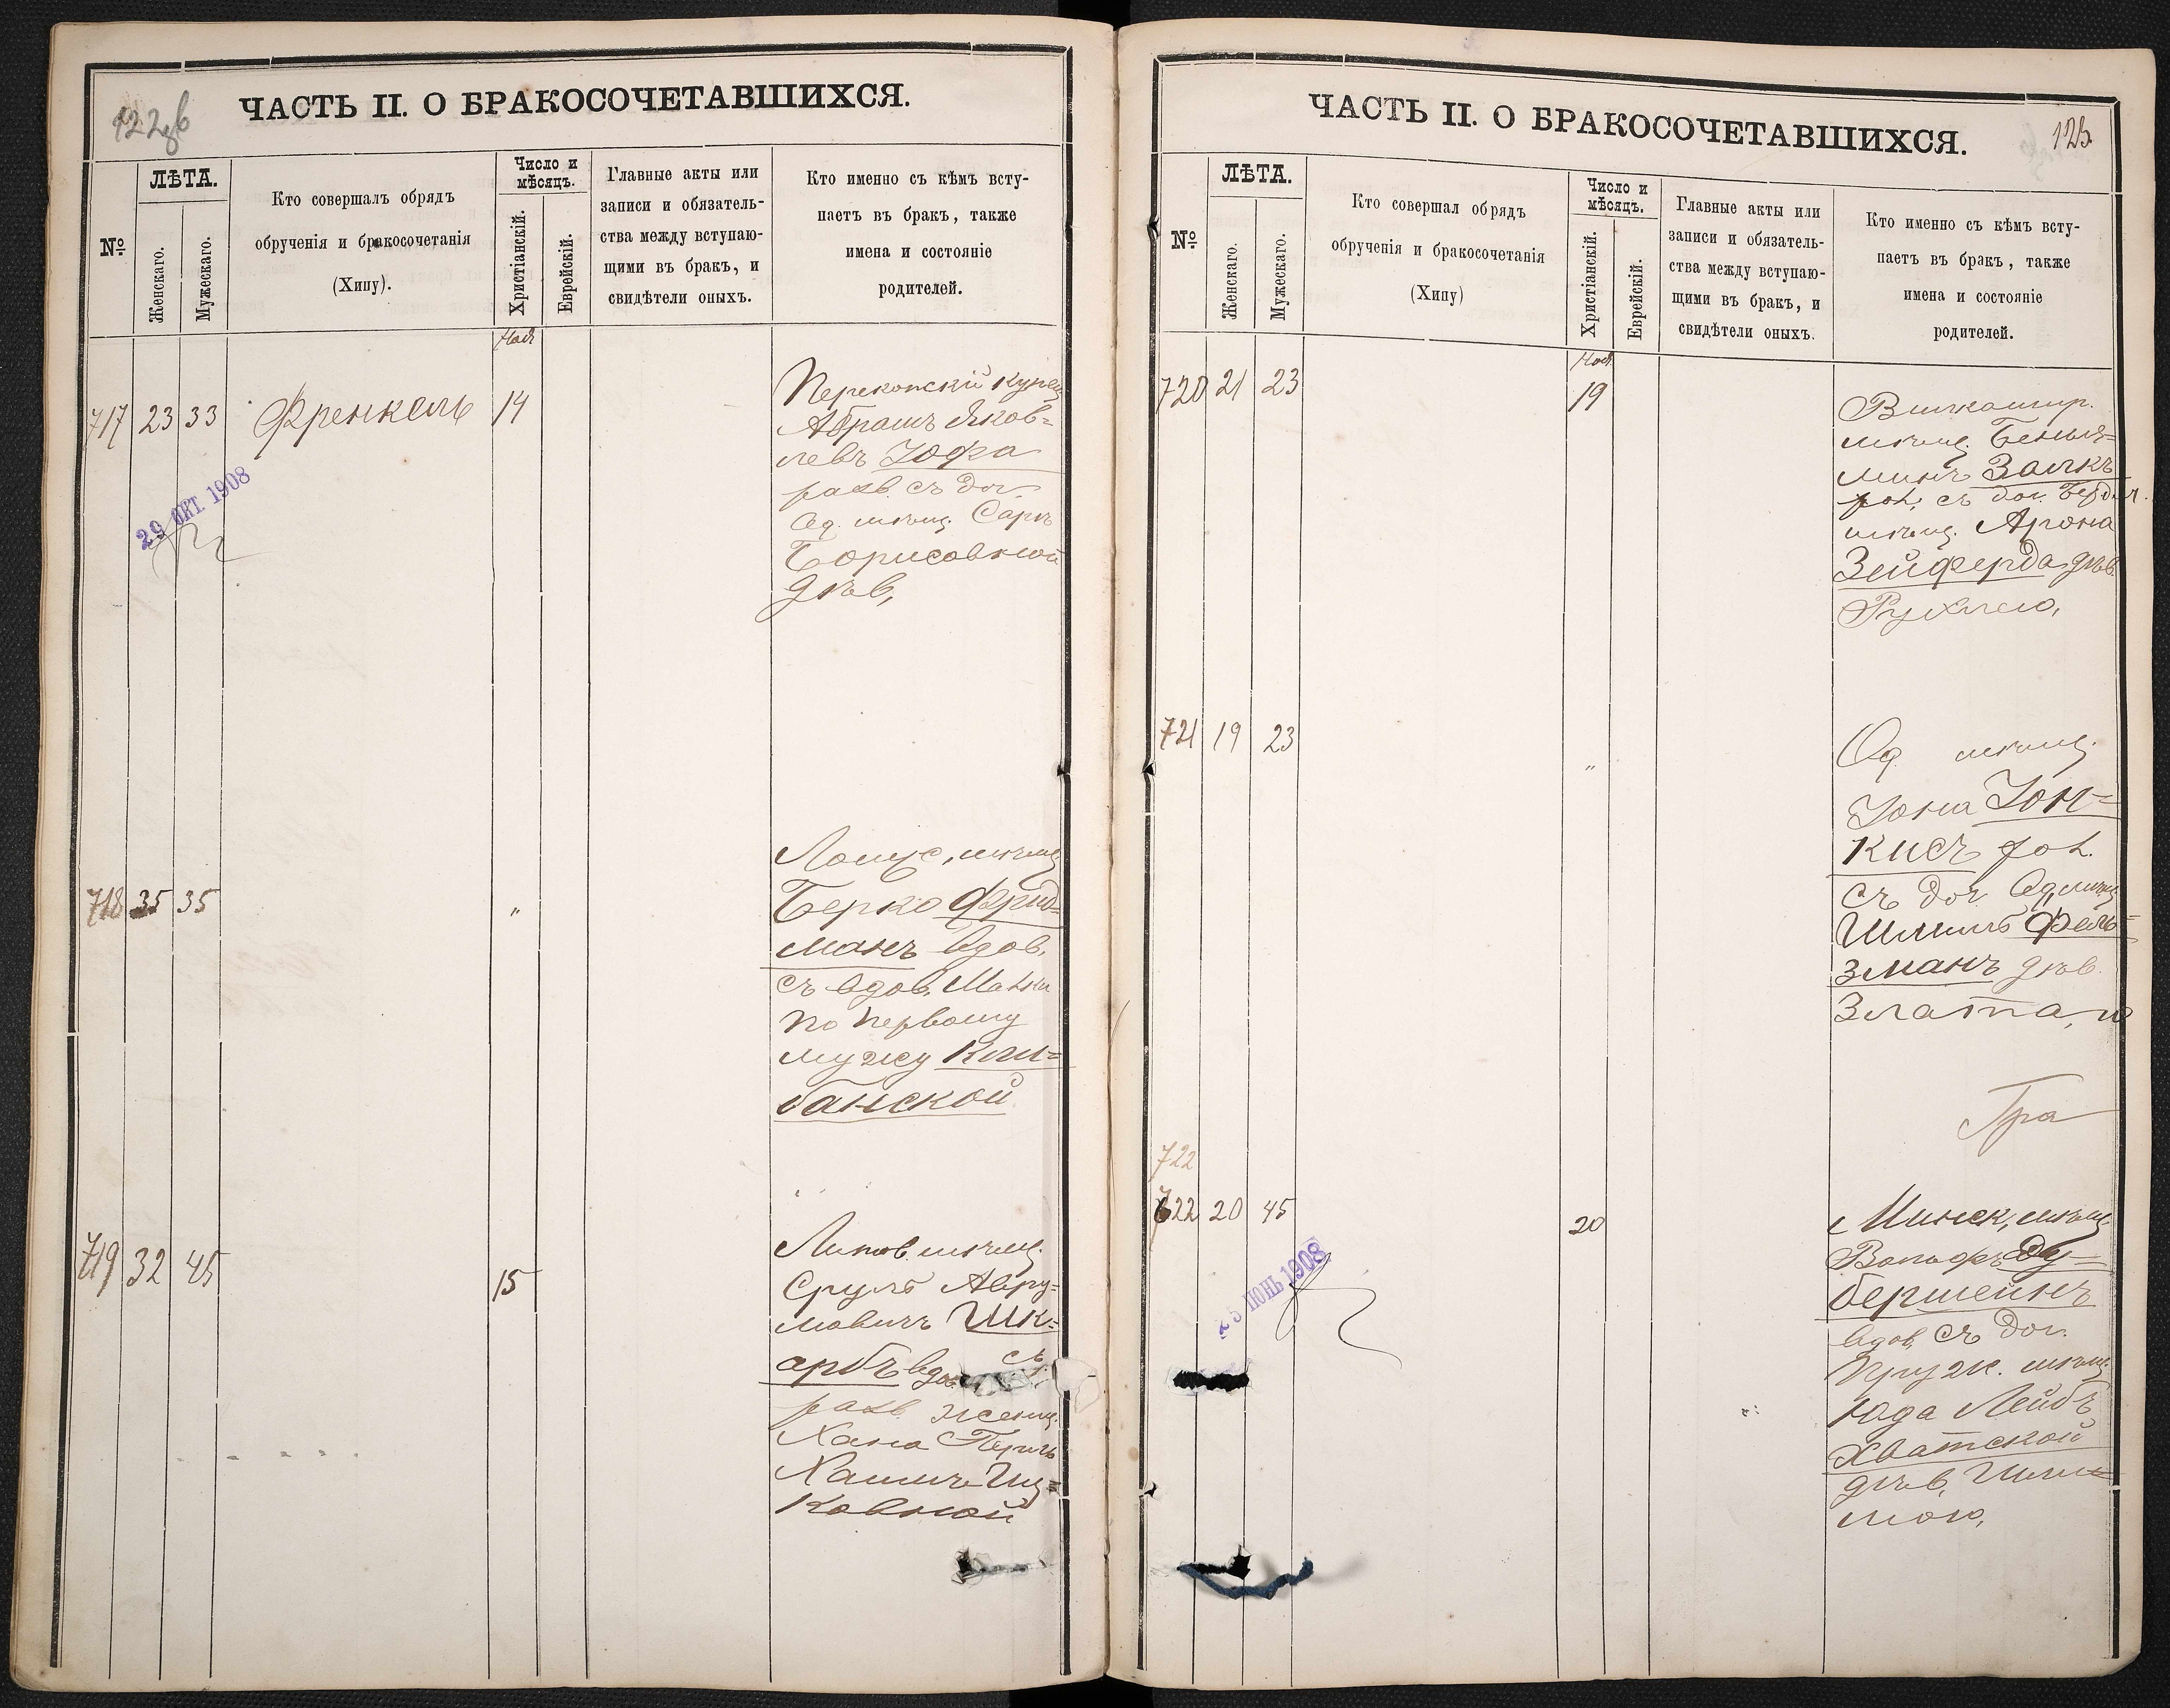 122об
ЧАСТЬ II. О БРАКОСОЧЕТАВШИХСЯ.
№
ЛѢТА.
Женскаго.
Мужескаго.
Кто совершалъ обрядъ
обрученія и бракосочетанія
(Хипу).
Число и
мѣсяцъ.
Христіанскій.
Еврейскій.
Главные акты или
записи и обязатель-
ства между вступаю-
щими въ бракъ, и
свидѣтели оныхъ.
Кто именно съ кѣмъ всту-
паетъ въ бракъ, также
имена и состояніе
родителей.
Ноя
717 23 33 Френкель 14
Перекопскій купец
Абрамъ Яков=
левъ Іофа
разв. съ доч.
Од. мѣщ. Саръ
Борисовной
дѣв,
29 ОКТ. 1908
718 35 35 "
мѣщ
Берко Фрид=
манъ вдов.
съ вдов.
по первому
мужу Кли=
банской
719 32 45 15
Липов. мѣщ.
Сруль Авру=
мовичъ Шк=
арбъ вдов съ
разв. женщ.
Хана Перль
Хаимъ Иц=
ковной
ЧАСТЬ II. О БРАКОСОЧЕТАВШИХСЯ.
123
№
ЛѢТА.
Женскаго.
Мужескаго.
Кто совершал обрядъ
обрученія и бракосочетанія
(Хипу)
Число и
мѣсяцъ.
Христіанскій.
Еврейскій.
Главные акты или
записи и обязатель-
ства между вступаю-
щими въ бракъ, и
свидѣтели оныхъ.
Кто именно съ кѣмъ всту-
паетъ въ бракъ, также
имена и состояніе
родителей.
Ноя
720 21 23 19
Вилкомир.
мѣщ. Бенья=
минъ Залкъ
хол. съ доч. Бердич.
мѣщ. Арона
Зейферда дѣв.
Рухлею,
721 19 23 "
Од. мѣщ.
Іона Іон=
кисъ хол.
съ доч. Од. мѣщ
Шмиль Фель=
зманъ дѣв.
Злата, ю
722
722 20 45 20
Минск. мѣщ.
Вольфъ Ду=
берштейнъ
вдов. съ доч.
Пруж. мѣщ
Юда Лейбъ
Хватской
дѣв,
мою,
25 ІЮНЬ 1908